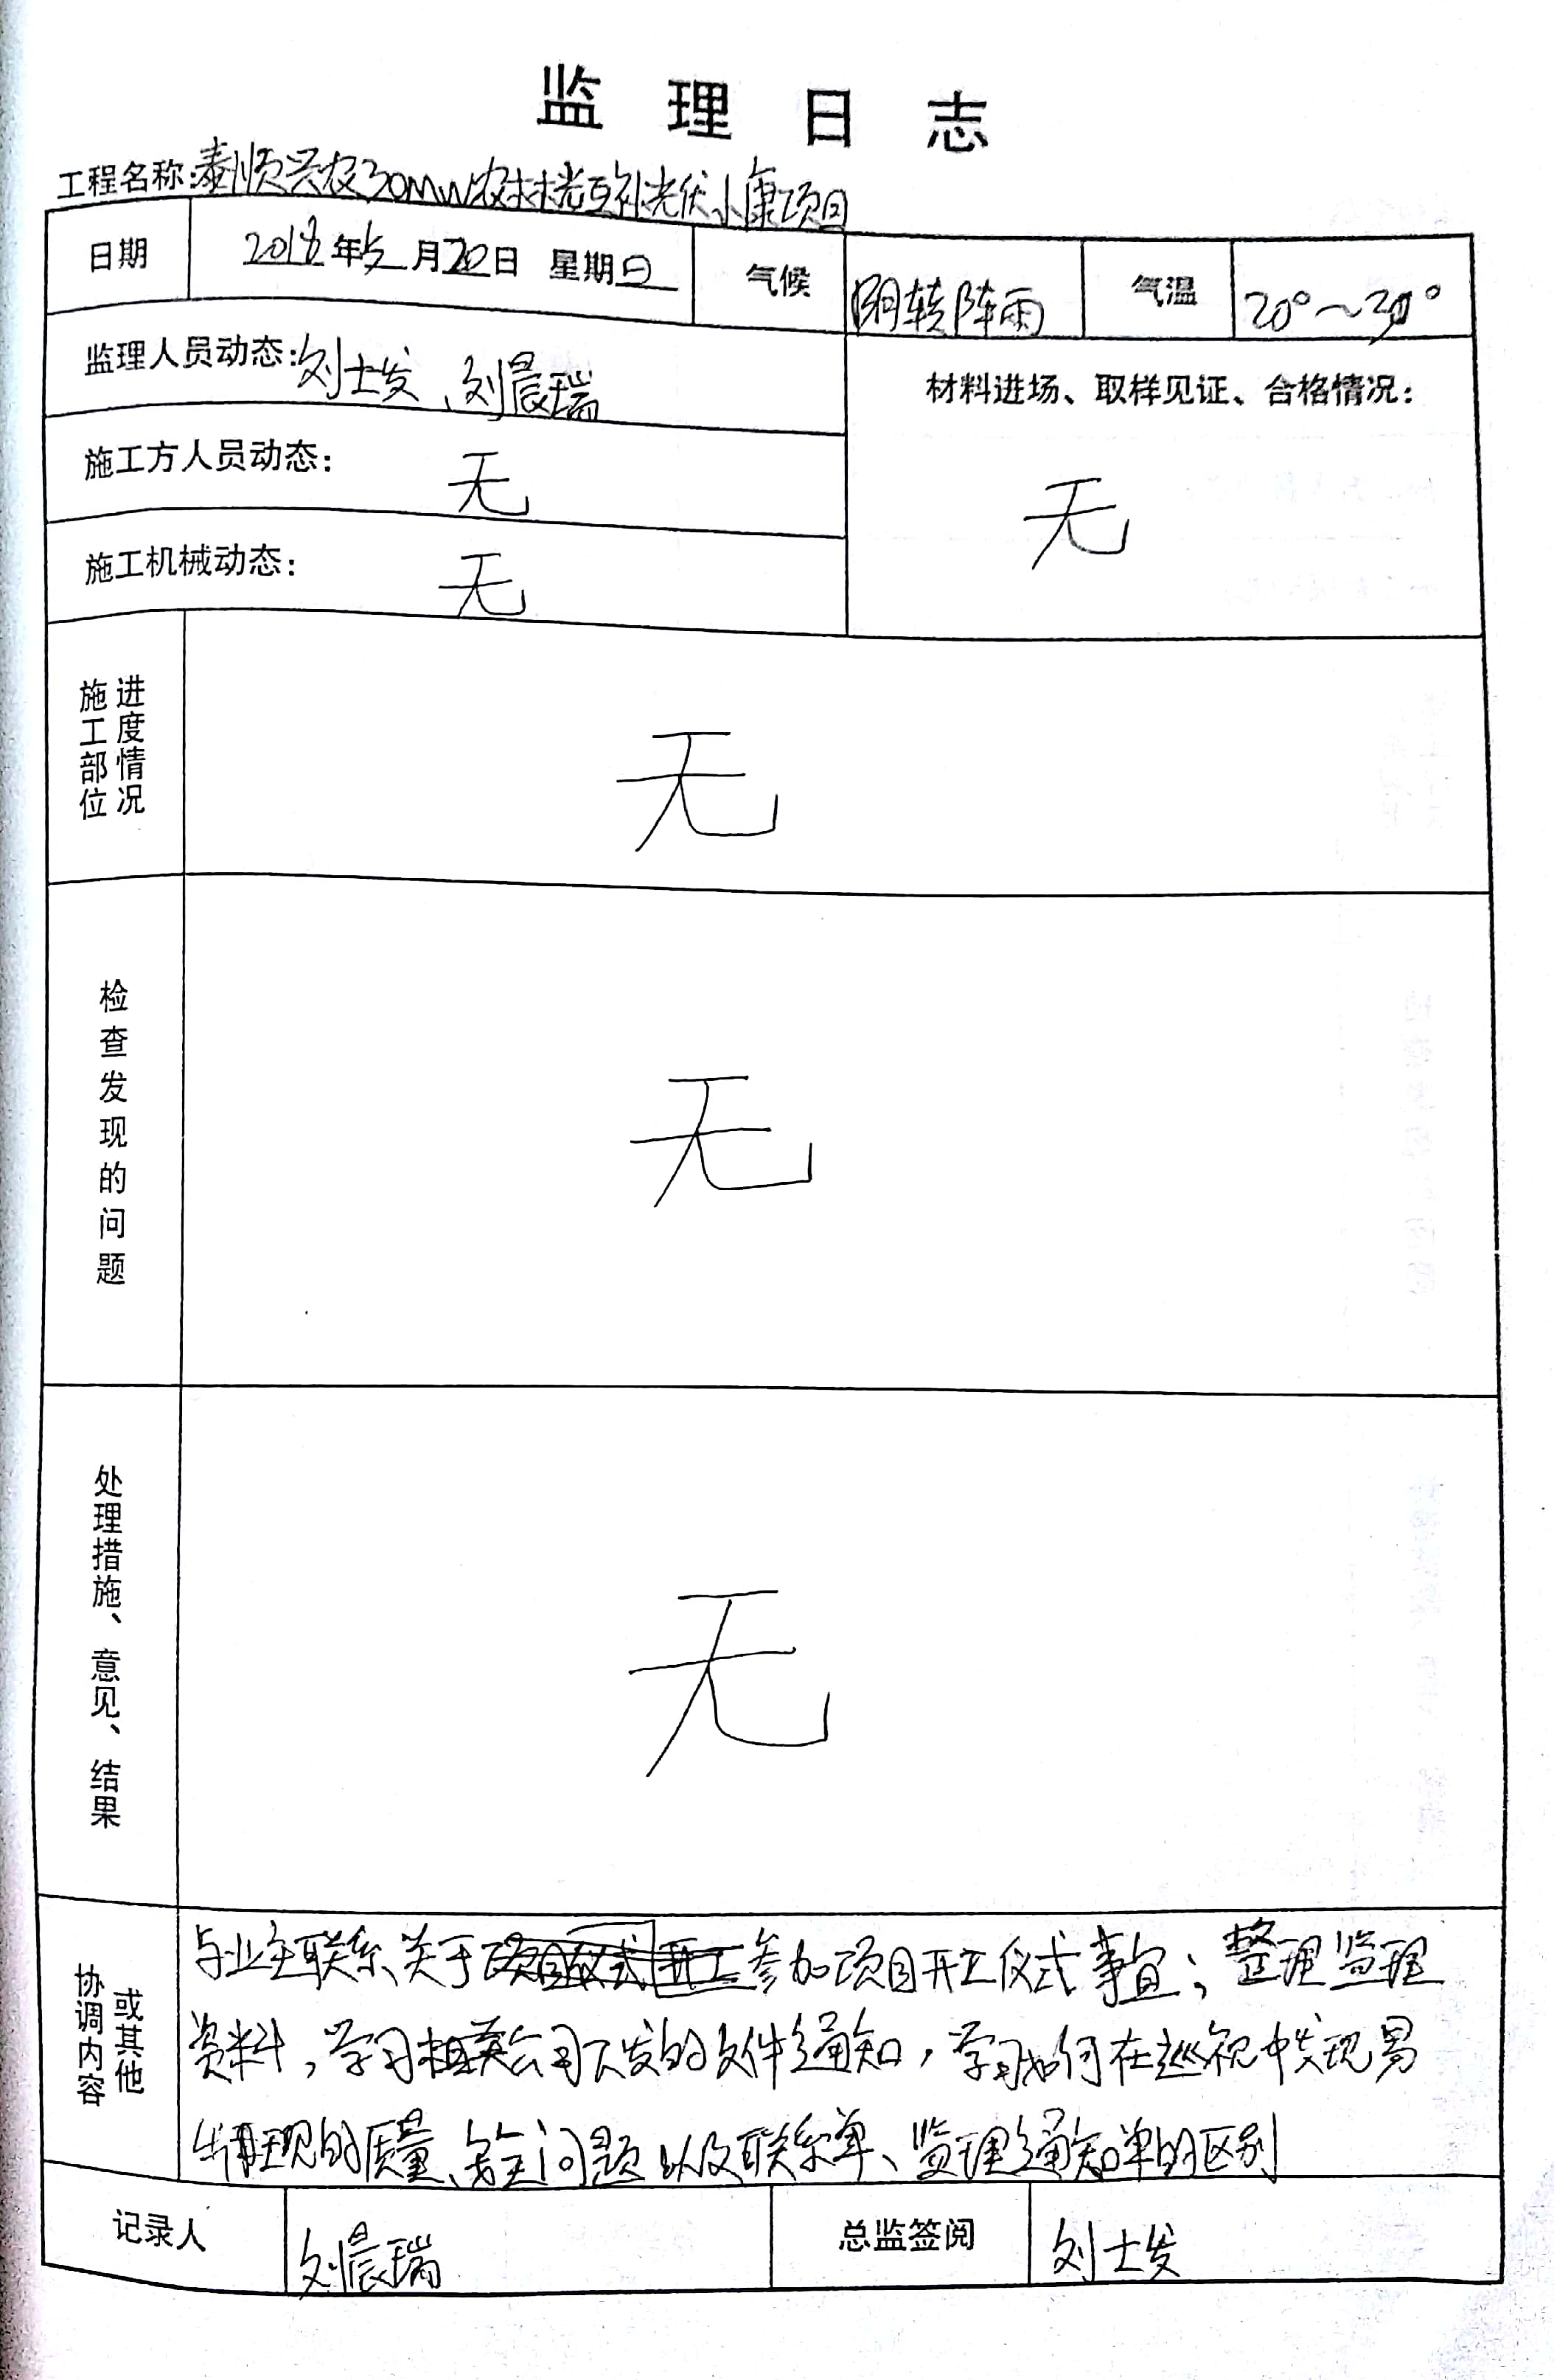 监理日志
工程名称:泰顺兴农30MW农林光互补光伏小康项目
日期 2018年5月20日 星期日 气候 阴转阵雨 气温 20°~30°
监理人员动态:刘士发、刘晨瑞
材料进场、取样见证、合格情况:
无
施工方人员动态: 无
施工机械动态: 无
施工部位
进度情况
无
检查发现的问题
无
处理措施、意见、结果
无
协调内容
或其他
与业主联系关于参加项目开工仪式事宜;整理监理
资料,学习相关公司下发的文件通知,学习如何在巡视中发现易
出现的质量、安全问题以及联系单、监理通知单的区别
记录人 刘晨瑞 总监签阅 刘士发